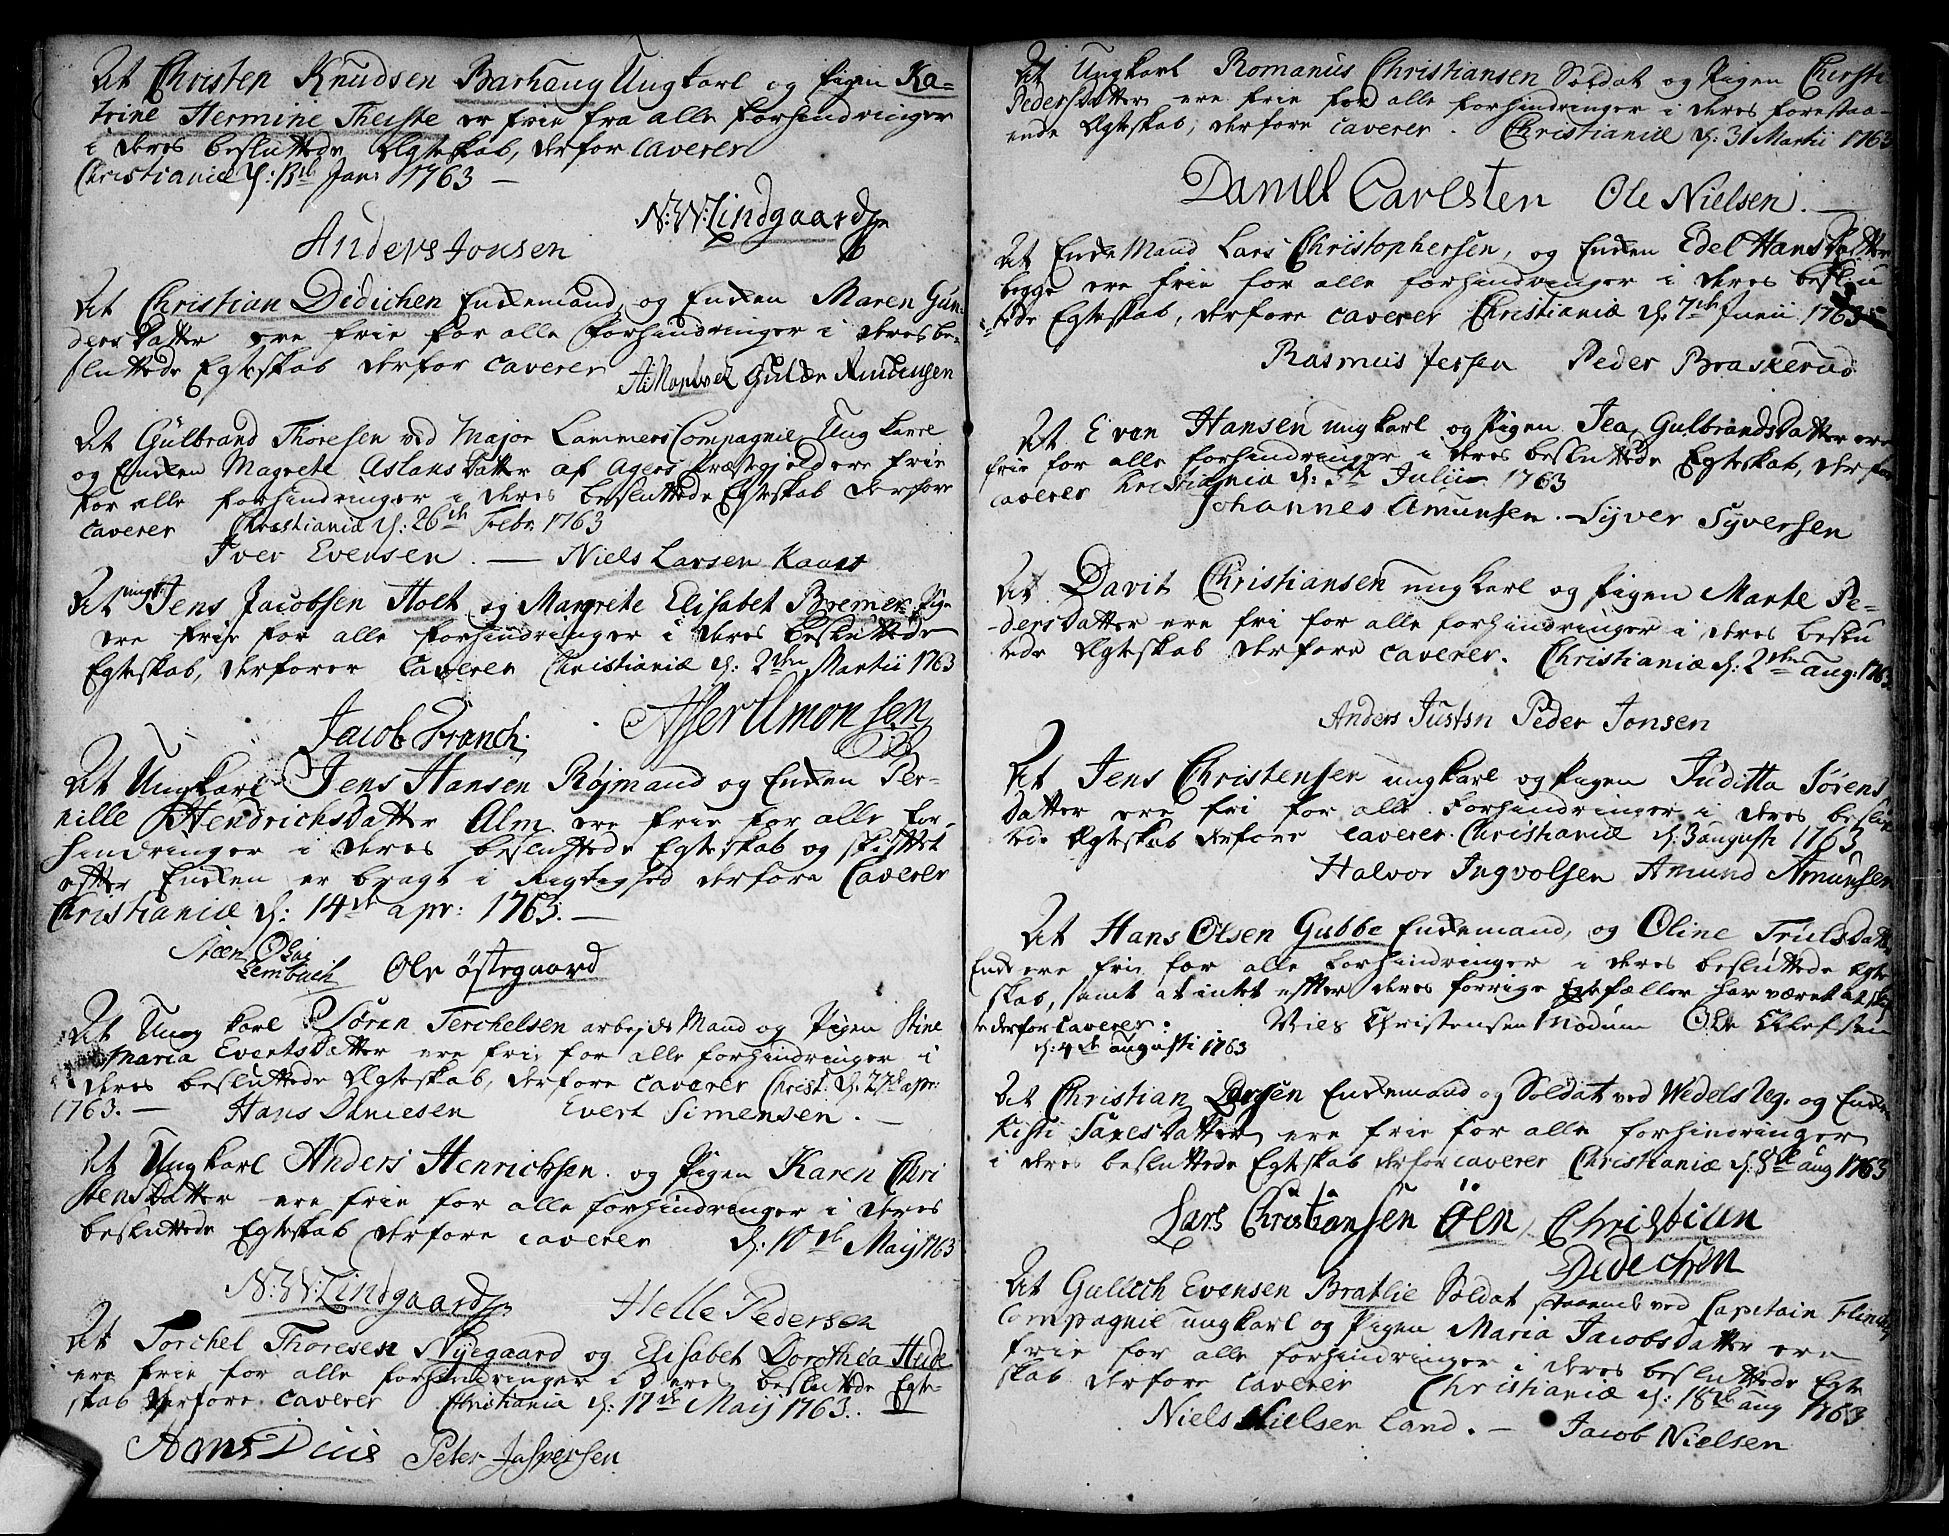 At Christen Knudsen Barhaug Ungkarl og Pigen Ka-
trine Hermine Theiste er frie fra alle forhindringer
i deres besluttede Ægteskab, derfor caverer
Christianiæ d: 13de Jan: 1763 —
N: W: Lindgaard
Anders Jonsen
At Christian Dedichen Enkemand, og Enken Maren Gun-
dersdatter ere frie for alle forhindringer i deres be-
sluttede Egteskab derfor caverer
Amunsen
At Gulbrand Thoresen ved Major Lammers Compagnie Ung karl
og Enken Magrete Aslaksdatter af Agers Præstegield ere frie
for alle forhindringer i deres besluttede Egteskab derfore
caverer Christianiæ d: 26de Febr 1763
Iver Evensen. — Niels Larsen Kaas
At ungk: Jens Jacobsen Holt og Margrete Elisabet Bremer Pige
ere frie for alle forhindringer i deres besluttede
Egteskab, derforer caverer Christianiæ d: 2den Martii 1763
Jacob Franch. Asser Amonsen
At Ungkarl Jens Hansen Røjmand og Enken Per-
nille Hendrichsdatter Alm ere frie for alle for-
hindringer i deres besluttede Egteskab og skiftet
efter Enken er bragt i Rigtighed derfore Caverer
Christianiæ d: 14de apr: 1763. —
Lembach Ole Østegaard
At Ung karl Søren Terchelsen arbejds Mand og Pigen Stine
Maria Evertsdatter ere frie for alle forhindringer i
deres besluttede Ægteskab, derfore caverer Christ: d: 27de apr:
1763. — Hans Danielsen Evert Simensen. —
At Ungkarl Anders Henrichsen og Pigen Karen Chri
stensdatter ere frie for alle forhindringer i deres
besluttede Egteskab derfore caverer d: 10de Maij 1763
N: W: Lindgaard Helle Pedersen
At Torchel Thoresen Nyegaard og Elisabet Dorothea Hude
ere frie for alle forhindringer i deres besluttede Egte-
skab derfore caverer Christiania d: 17de Maij 1763.
Hans Dius Peter Jaspersen
At Ungkarl Romanus Christiansen Soldat og Pigen Chersti
Pedersdatter ere frie for alle forhindringer i deres forestaa-
ende Ægteskab, derfore caverer. Christianiæ d: 31 Martii 1763
Daniel Carlsten Ole Nielsen. —
At Enke Mand Lars Christophersen, og Enken Edel Hansdatter
begge ere frie for alle forhindringer i deres beslu
tede Egteskab, derfore caverer Christianiæ d: 7de Junii 1763
Rasmus Jersen Peder Braskerud
At Even Hansen ungkarl og Pigen Jea Gulbrandsdatter ere
frie for alle forhindringer i deres besluttede Egteskab, derfor
caverer Christiania d: 5te Julii 1763
Johannes Amunsen. — Syver Syversen
At Davit Christiansen ungkarl og Pigen Marte Pe-
dersdatter ere fri for alle forhindringer i deres beslu
tede Ægteskab derfore caverer. Christianiæ d: 2den aug: 1763
Anders Justsn Peder Jonsen
At Jens Christensen ungkarl og Pigen Juditta Sørens
datter ere fri for alle forhindringer i deres beslut
tede Ægteskab derfore caverer. Christianiæ d: 3 augusti 1763
Halvor Ingvolsen Amund Amunsen
At Hans Olsen Gubbe Enkemand, og Oline Trulsdatt
Enke ere frie for alle forhindringer i deres besluttede Ægte
skab, samt at intet efter deres forrige Egtefæller har været at skif
te derfor caverer. Niels Christensen Modum Ole Olefsen
d: 4de augusti 1763
At Christian Larsen Enkemand og Soldat ved Wedels Reg. og Enken
Kisti Saxesdatter ere frie for alle forhindringer
i deres besluttede Egteskab derfor caverer Christianiæ d: 8de aug 1763
Lars Christiansen Öen, Christian
Dedechen
At Gullich Evensen Bratlie Soldat staaende ved Capitain Flindts
Compagnie ungkarl og Pigen Maria Jacobsdatter ere
frie for alle forhindringer i deres besluttede Egte
skab derfore caverer Christianiæ d: 18de aug 1763
Niels Nielsen Land. — Jacob Nielsen